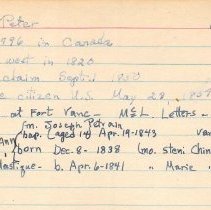 Peter
1796 in Canada
west in 1820
claim Sept. 1850
citizen U.S. May 28, 1851
at Fort Vanc - McL Letters -
m. Joseph Petrain
Ann bap. (aged 14) Apr. 19-1843 Van
born Dec. 8 - 1838 (mo. steni Chin
Mastique - b. Apr. 6-1841 " Marie "